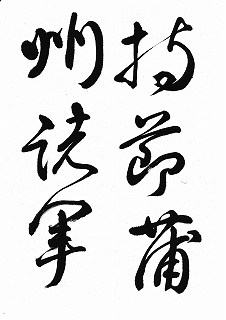 持節蒲
州諸軍